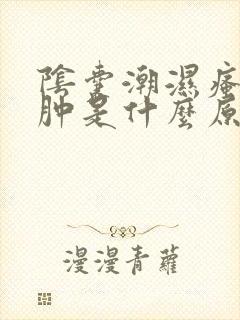 陰囊潮濕瘙
肿是什麼原
漫漫青蘿